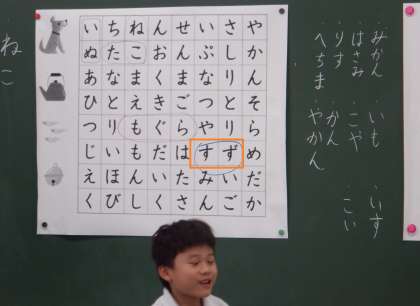 いちねんせいさや
ぬたこおんぷしか
あなまくまなりん
ひとえきごつとそ
つりもぐらやりら
じいもだはすずめ
えほんいたみいだ
くびしくさんごか
みかん
はさみ
りす
へちま
いも
こや
かん
やかん
いす
こい
ねこ